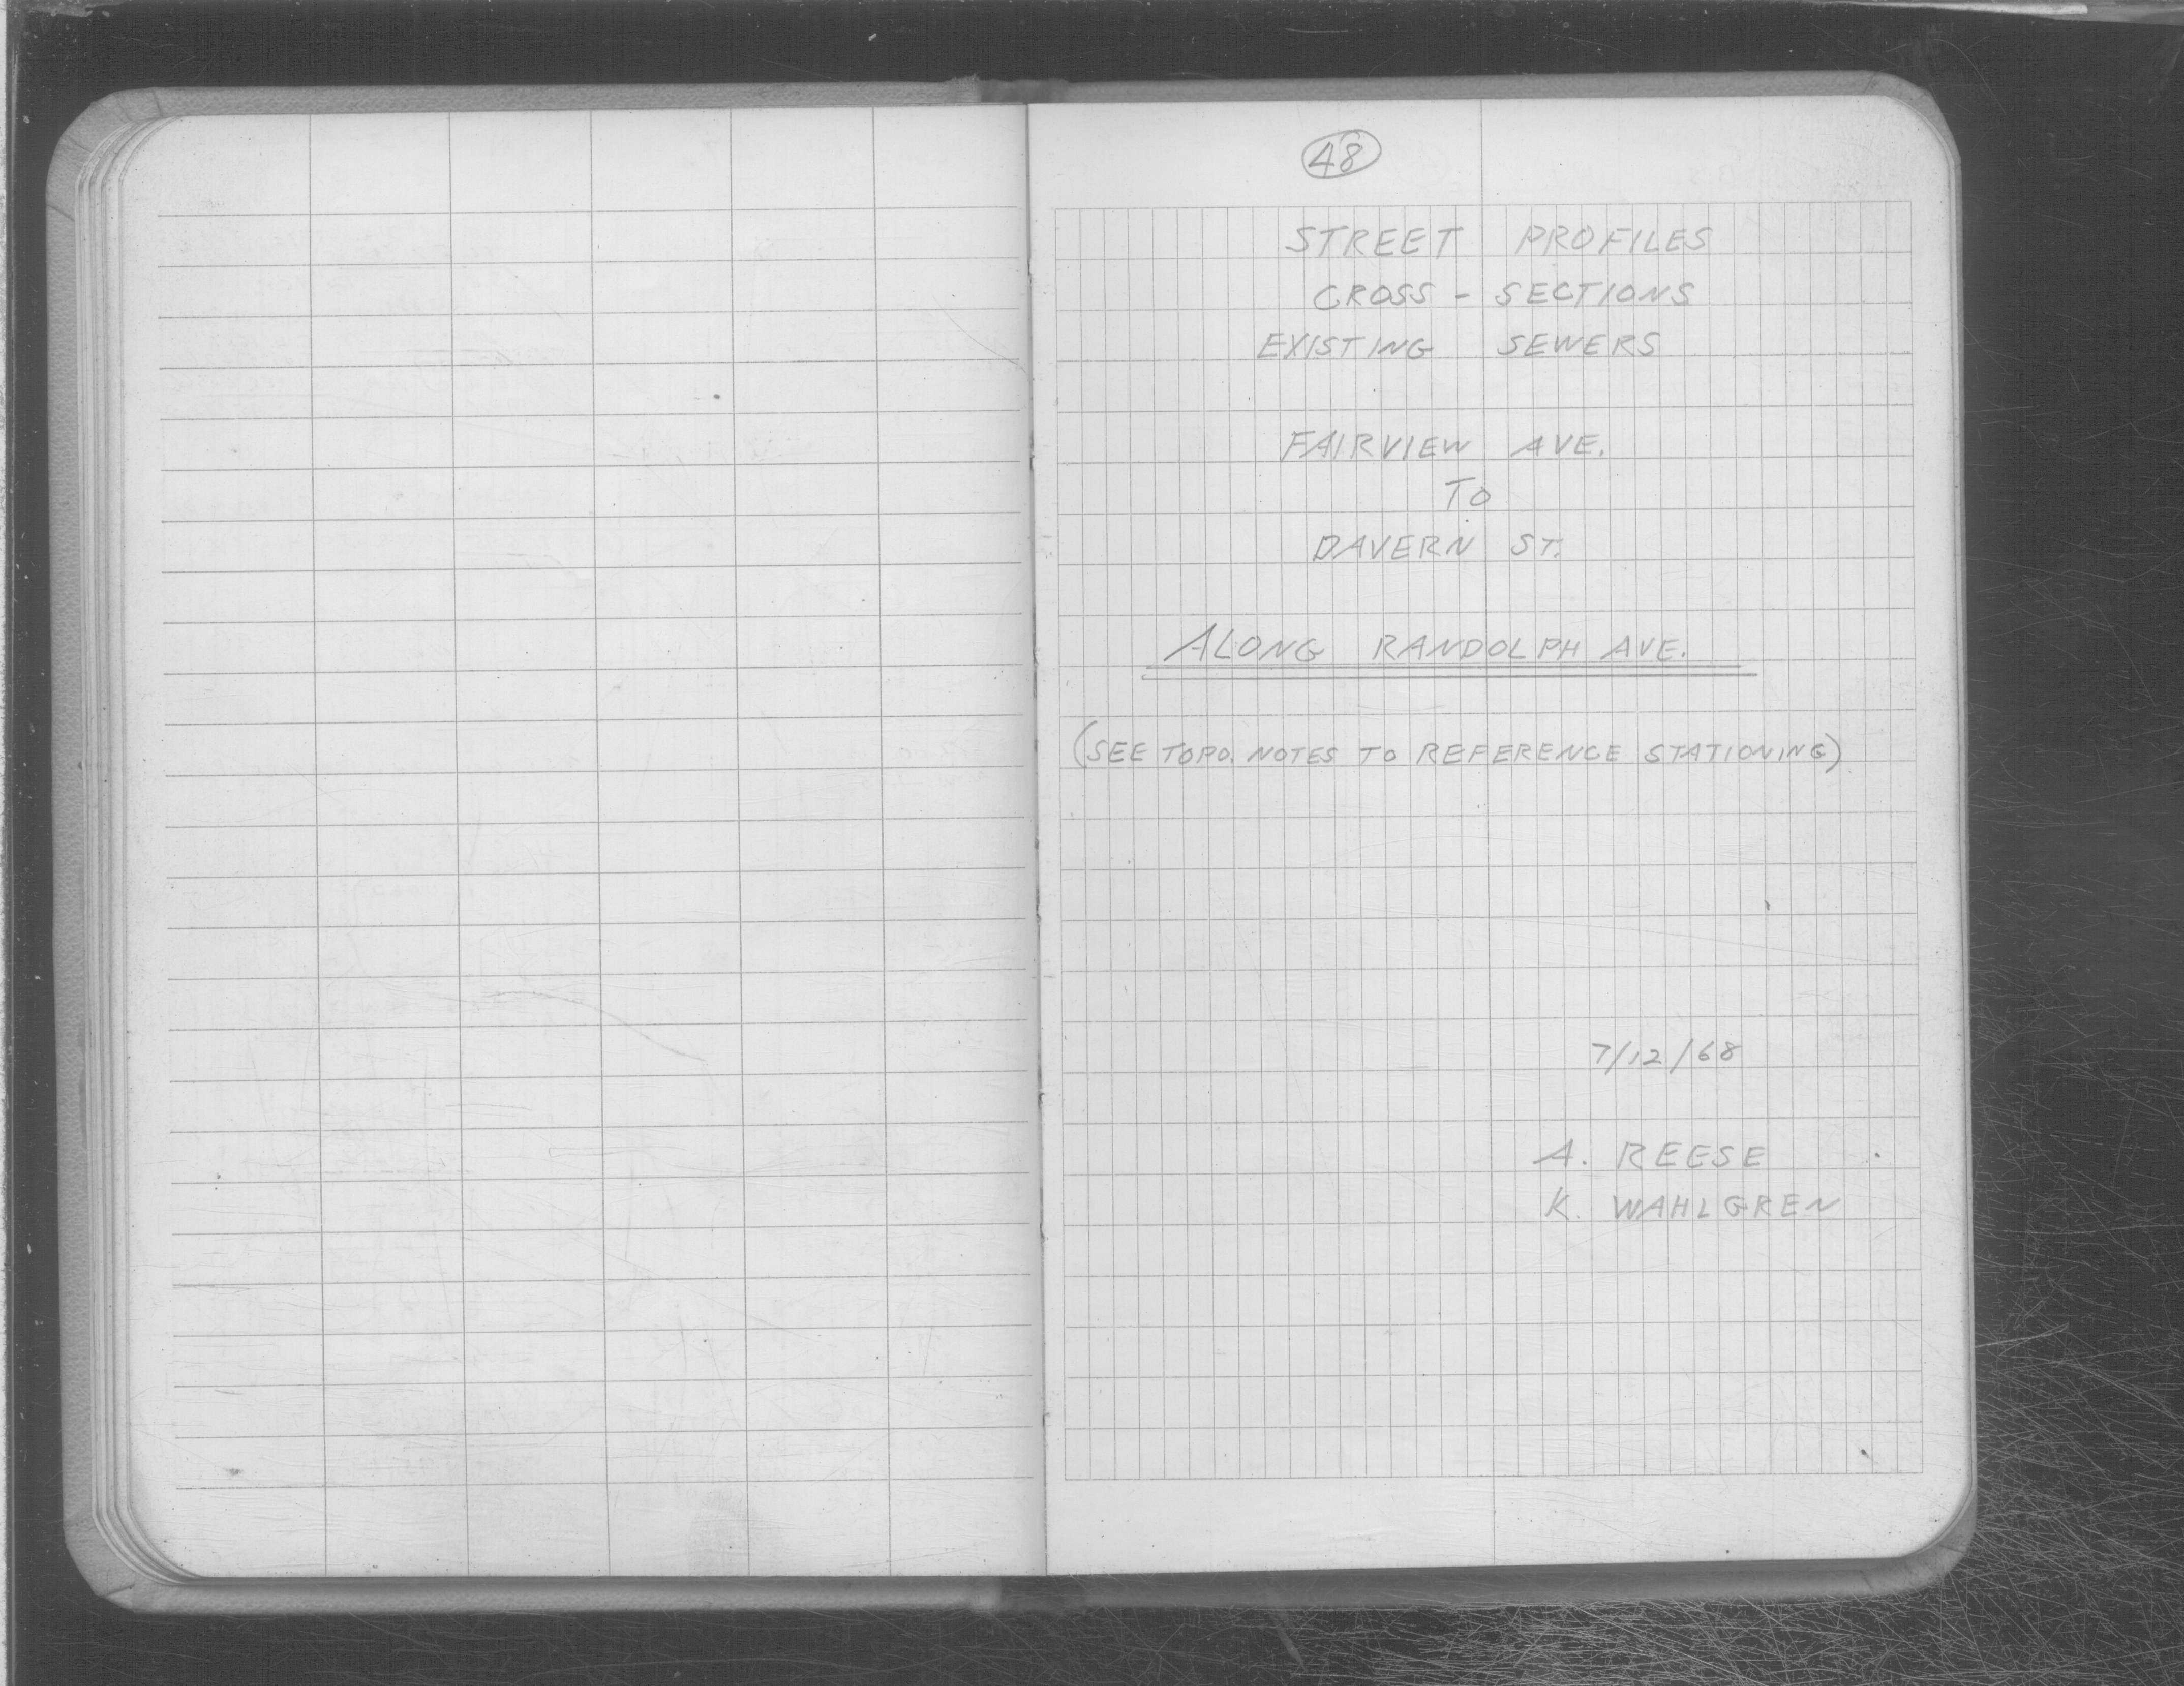 48
STREET PROFILES
CROSS - SECTIONS
EXISTING SEWERS
FAIRVIEW AVE.
TO
DAVERN ST.
ALONG RANDOLPH AVE.
(SEE TOPO. NOTES TO REFERENCE STATIONING)
7/12/68
A. REESE
K. WAHLGREN